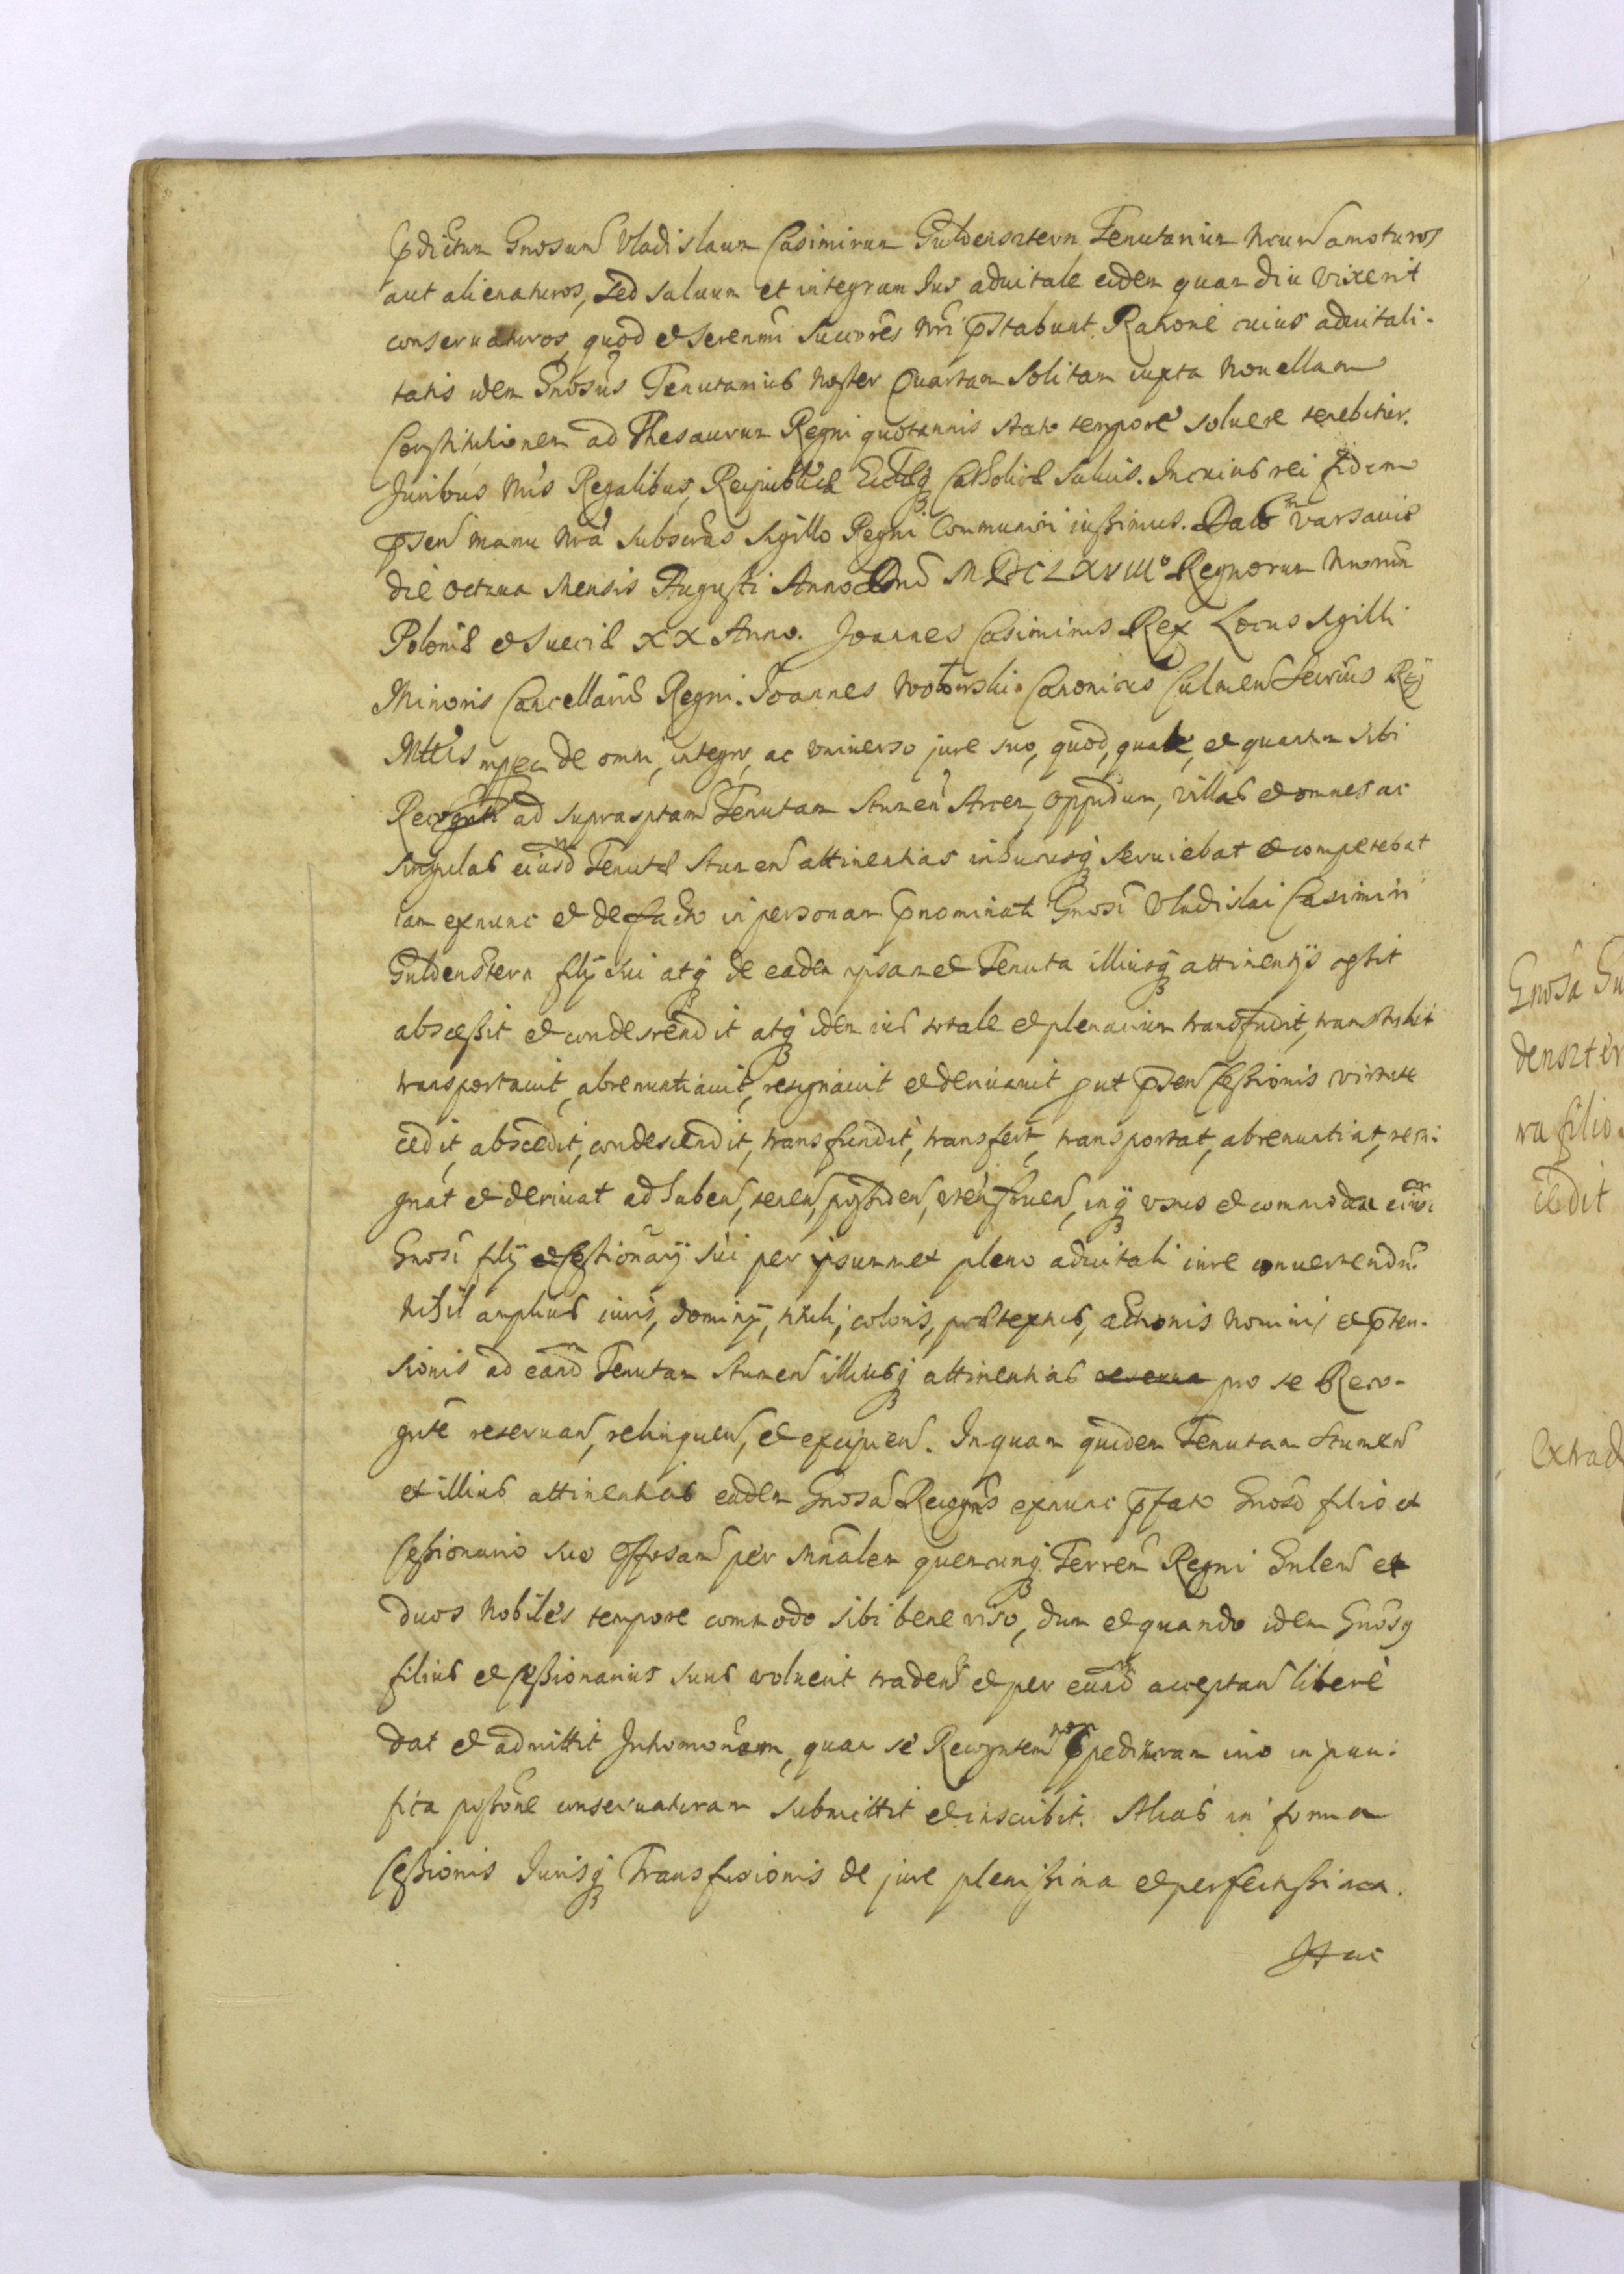 Pdictum Gnosum Vladislaum Casimirum Guldensztern Tenutarium Nrum amoturos
aut alienaturos, sed saluum et integrum Ius aduitale eidem quam diu vixerit
conseruaturos, quod et Serenmi Succres Nri pstabunt. Ratione cuius aduitali-
tatis idem Gnosus Tenutarius Noster Quartam solitam iuxta Nouellam
Constitutionem ad Thesaurum Regni quotannis stato tempore soluere tenebitur.
Iuribus Nris Regalibus, Reipublicæ Ecclæq Catholicæ saluis. In cuius rei fidem
psen manu Nra subscras Sigillo Regni Communiri iussimus. Datt Varsauiæ
die Octaua Mensis Augusti Anno Dni MDCLXVIIIo Regnorum Nrorum
Poloniæ et Sueciæ XX Anno. Joannes Casimirus Rex Locus Sigilli
Minoris Cancellariæ Regni. Joannes Canonicus Culmen Secrius Rg
Mttis mpea de omni, integro, ac vniuerso jure suo, quod, quale, et quantum sibi
Recognti ad suprasptam Tenutam Stumen Arcem, Oppidum, villas et omnes ac
singulas eiusdm Tenutæ Stumen attinentias inhucusq seruiebat et competebat
iam exnunc et de facto in personam pnominati Gnosi Vladislai Casimiri
Guldenstern filij sui atq de eadem ipsamet Tenuta illiusq attinentijs cessit
abscessit et condescendit atq idem ius totale et plenarium transfudit, transtulit
transportauit, abrenuntiauit, resignauit et deriuauit put psen Cessionis virtute
cedit, abscedit, condescendit, transfundit, transfert, transportat, abrenuntiat, resi-
gnat et deriuat ad haben, tenen, possiden, vten fruen, inq vsus et commoda eius:
Gnosi filij et Cessionarij sui per ipsummet pleno aduitali iure conuertendu
Nihil amplius iuris, dominij, tituli, coloris, prætextus, actionis nominis et pten-
sionis ad eand Tenutam Stumen illiusq attinentias pro se Reco-
gnte reseruan, relinquen, et excipien. In quam quidem Tenutam Stumen
et illius attinentias eadem Gnosa Recogns exnunc pfato Gnoso filio et
Cessionario suo per Mnalem quemcunq Terrem Regni Gnlem et
duos Nobiles tempore commodo sibi bene viso, dum et quando idem Gnosq
filius et Cessionarius suus voluerit traden et per eund acceptan libere
dat et admittit Intromonem, quam se Recogntem non pedituram imo in paci-
fica possone conseruaturam submittit et inscribit. Alias in forma
Cessionis Jurisq Transfusionis de jure plenissima et perfectissima.
Hac
Gnosa Gu
densztér
na filio
cedit
Extrad